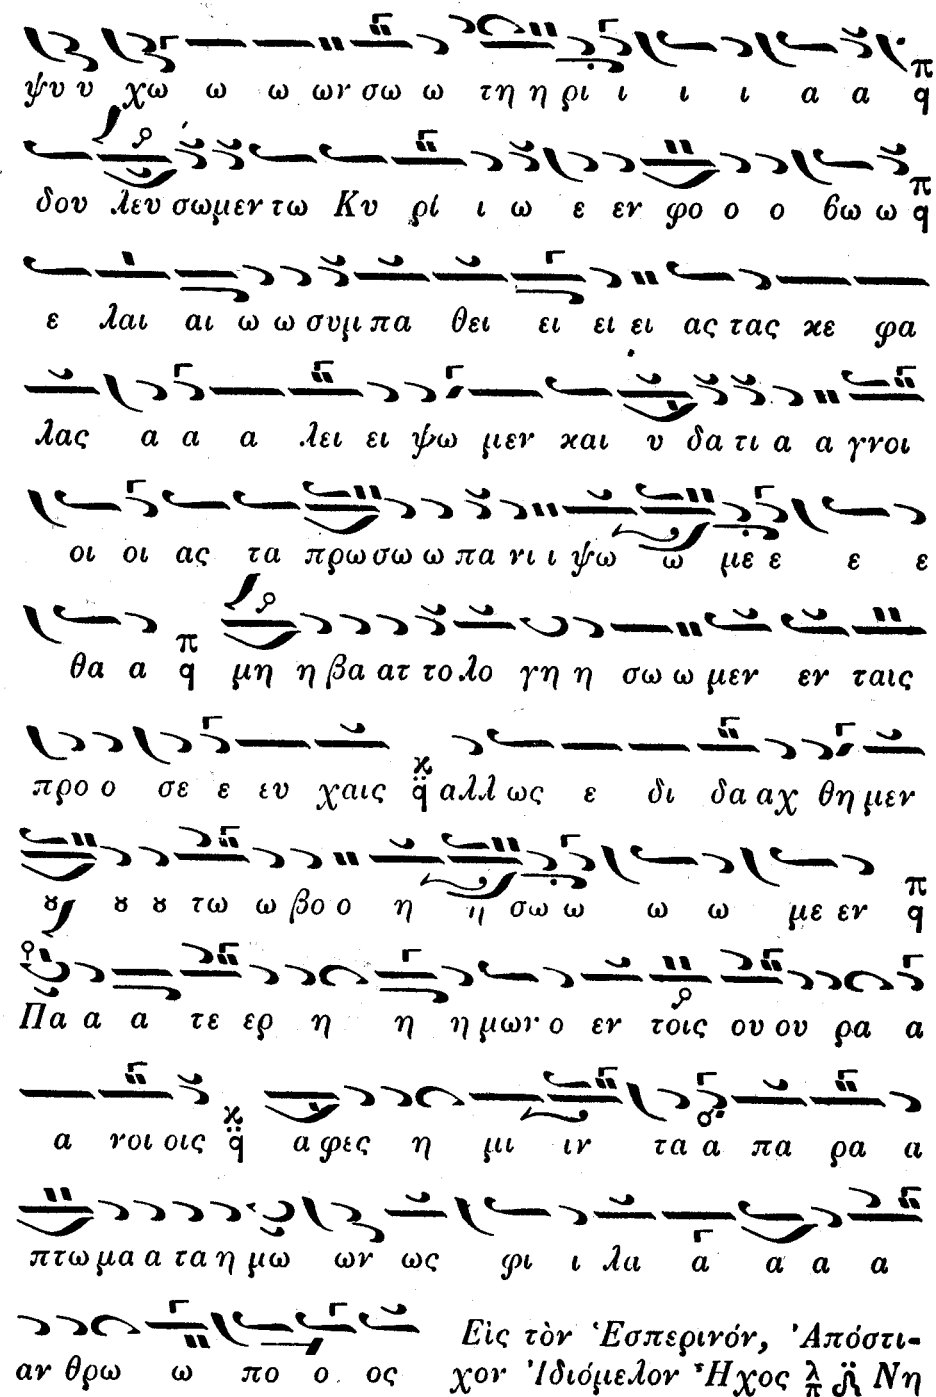 ψυ υ χω ω ω ων σω ω τη η ρι ι ι ι α α π q
δου λευ σωμεν τω Κυ ρί ι ω ε εν φο ο ο βω ω π q
ε λαι αι ω ω συμ πα θει ει ει ει ας τας κε φα
λας α α α λει ει ψω μεν και υ δα τι α α γνοι
οι οι ας τα πρω σω ω πα νι ι ψω ω με ε ε ε
θα α π q μη η βα ατ το λο γη η σω ω μεν εν ταις
προ ο σε ε ευ χαις κ q αλλ ως ε δι δα αχ θη μεν
ȣ ȣ ȣ τω ω βο ο η η σω ω ω ω με εν π q
Πα α α τε ερ η η η μων ο εν τοις ου ου ρα α
α νοι οις κ q α φες η μι ιν τα α πα ρα α
πτω μα α τα η μω ων ως φι ι λα α α α α
αν θρω ω πο ο ος
Εἰς τὸν Ἑσπερινόν, Ἀπόστι-
χον Ἰδιόμελον Ἦχος λ π Νη